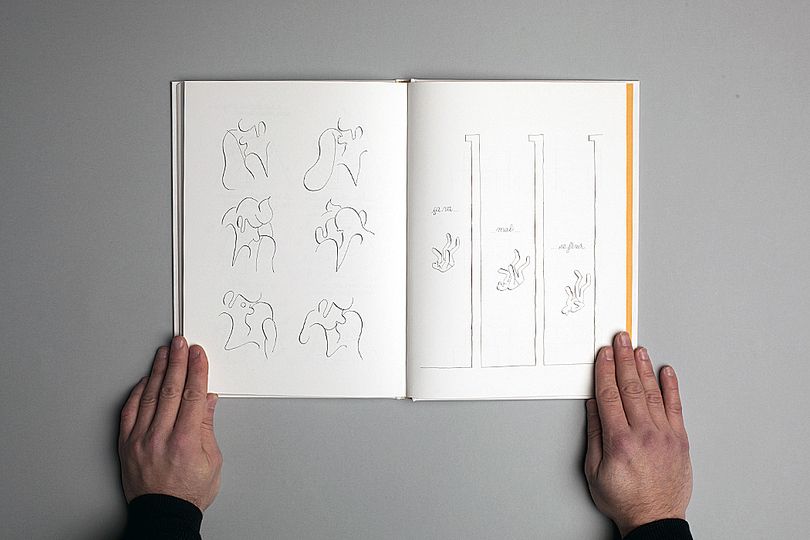 ça va...
mal...
se finir